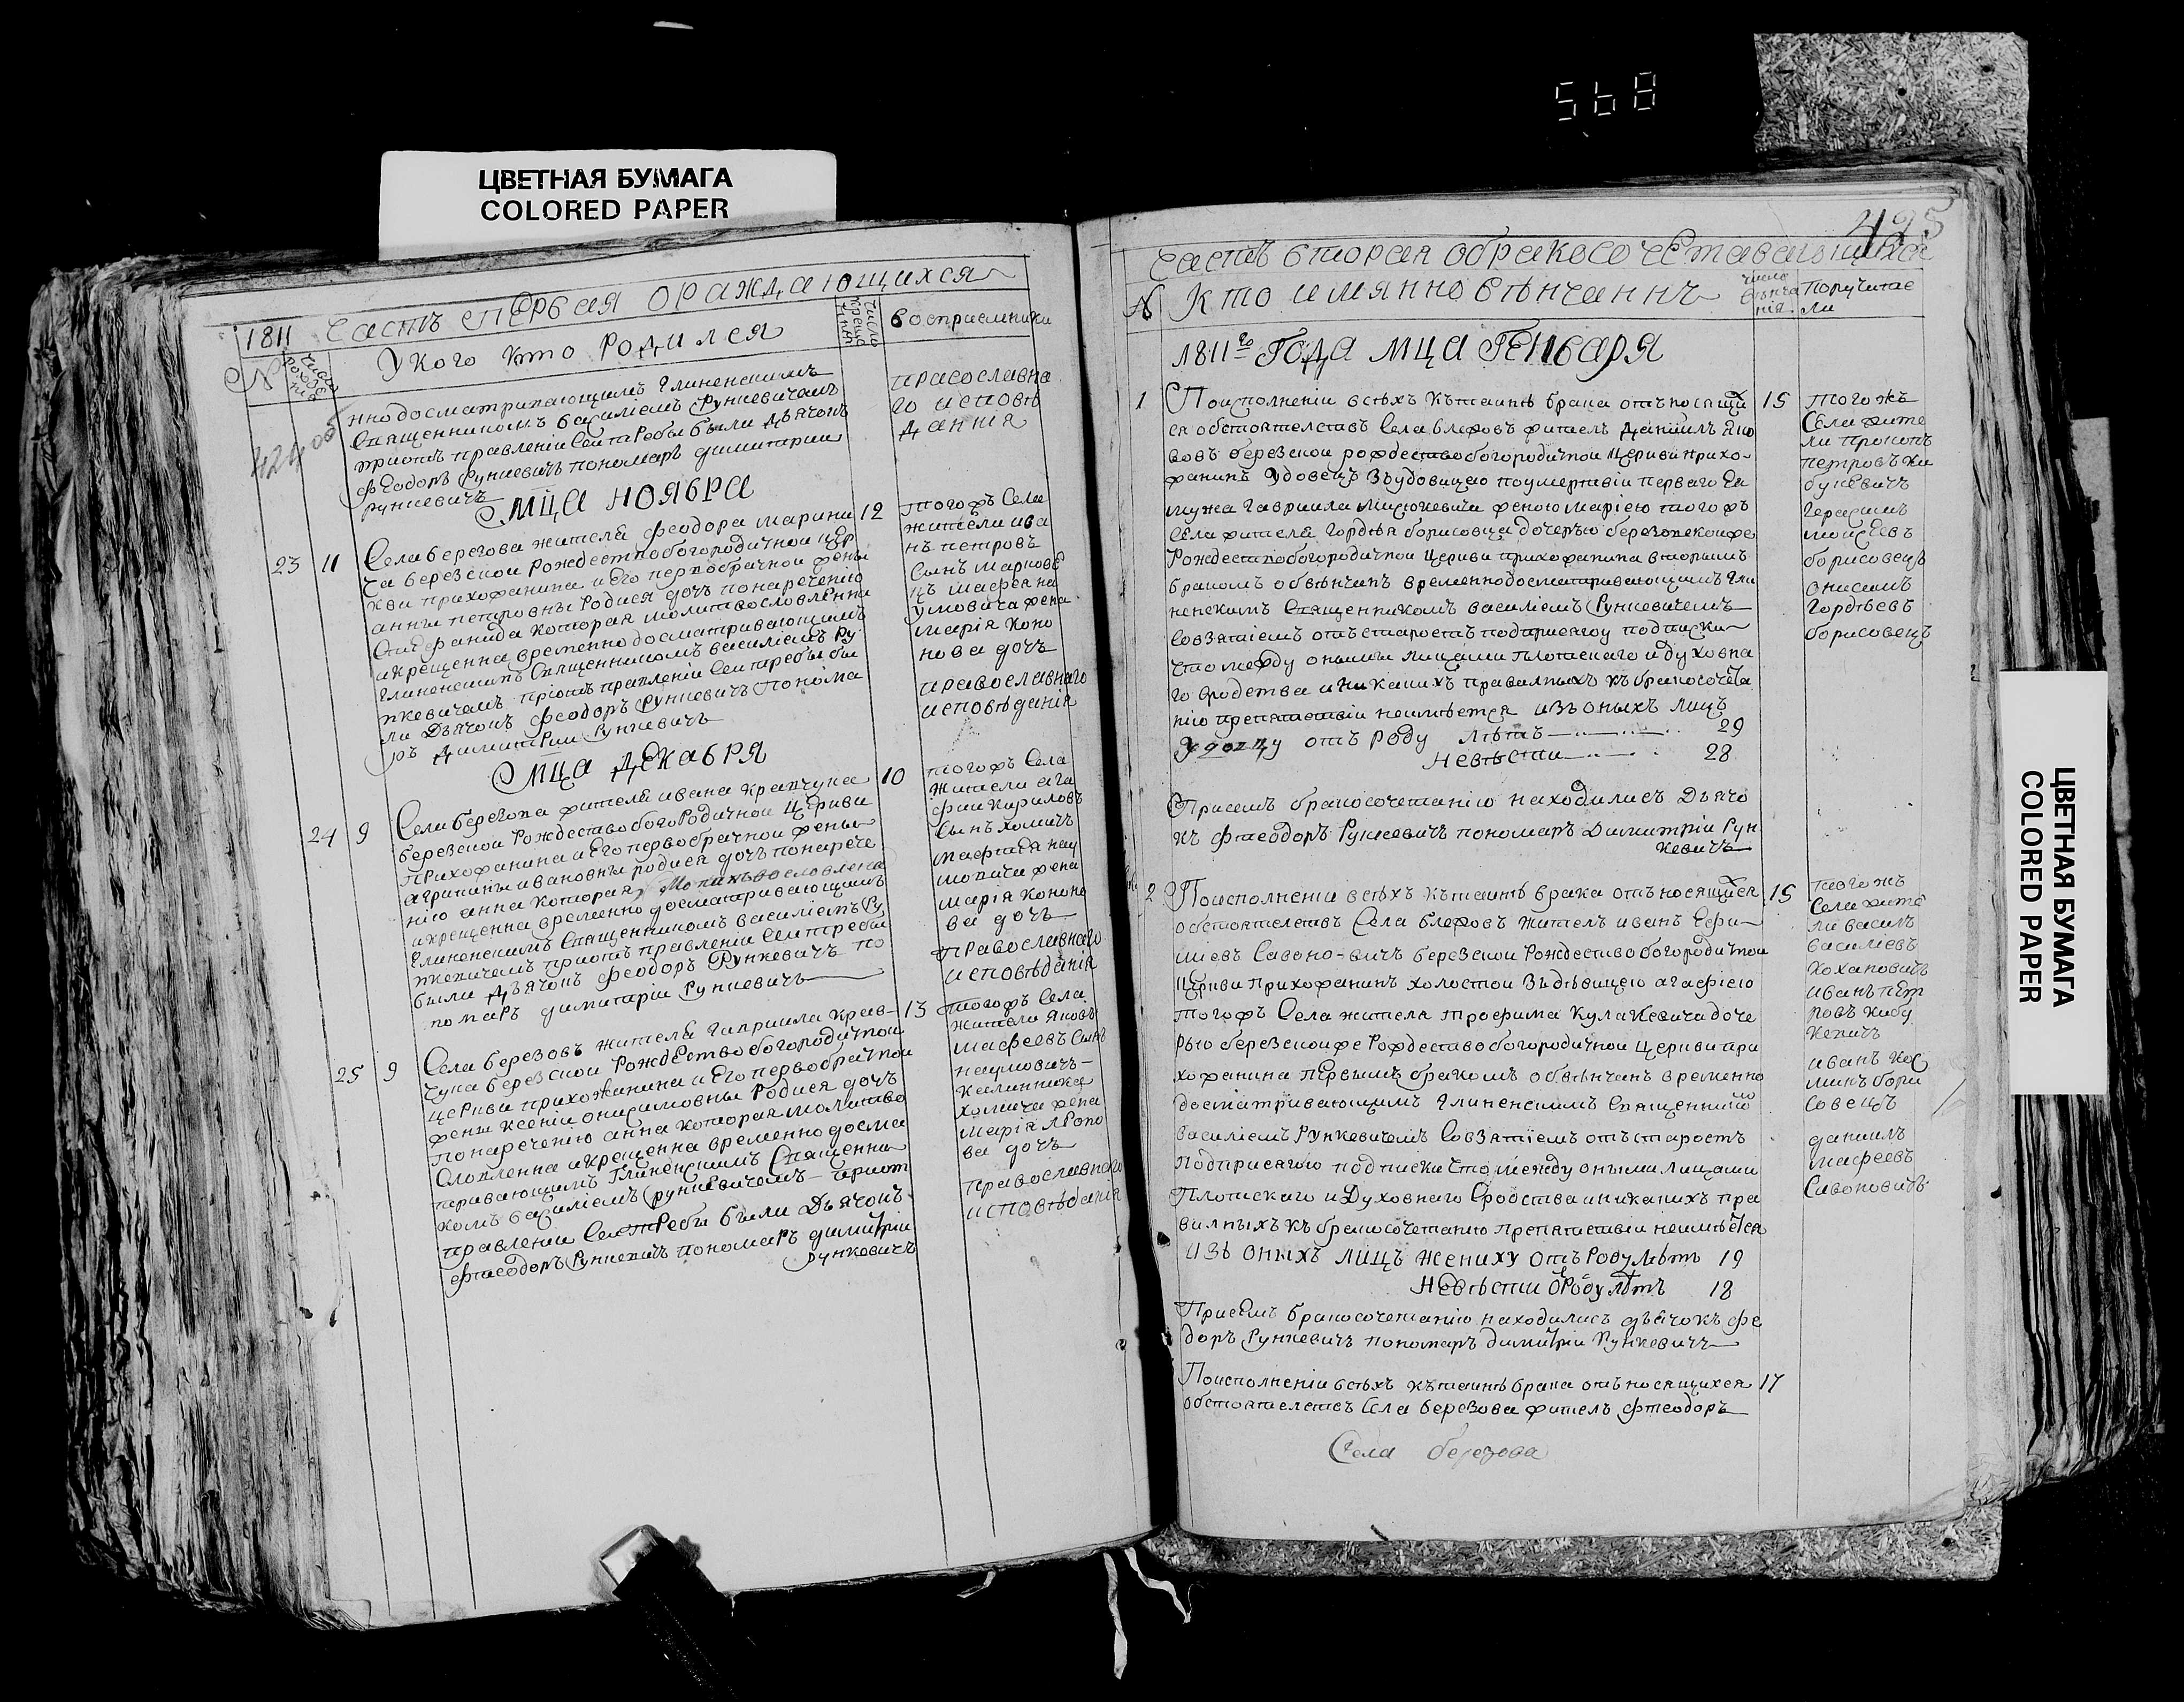 568
ЦВЕТНАЯ БУМАГА
COLORED PAPER
1811 Часть Первая ораждающихся
№
число рожде нія
Укого кто Родился
число креще нія
восприемники
424 об
нно досматривающимъ Глиненскимъ
Священникомъ василіемъ Рункевичемъ
приотъ правленіи Сей требы были Дьячокъ
феодоръ Рункевичъ пономаръ димитрии
рункевичъ
православна
го исповѣ
данія
Мца ноября
23 11
Села берегова жителя феодора марини
ча березской Рождествобогородичной цер
кви прихожанина и Его первобрачной жены
анны петровны Родися дочъ понаречению
Стефанида которая молитвословленна
икрещенна временно досматривающимъ
Глиненскимъ Священникомъ василіемъ Ру
нкевичемъ приотъ правленіи Сей требы бы
ли Дьячокъ феодоръ Рункевичъ Понома
ръ Димитрии Рункевичъ
12
тогожъ Села
жители ива
нъ петровъ
Сынъ марпове
цъ матфея на
умовича жена
марія Коно
нова дочъ
православнаго
исповѣданія
Мца декабря
24 9
Села берегова жителя ивана кравчука
березской Рождествобогородичной Церкви
Прихожанина иЕго первобрачной жены
агрипины ивановны родися дочъ понарече
нію анна которая Молитвословленна
икрещенна временно досматривающимъ
Глиненскимъ Священникомъ василіемъ Ру
нкевичемъ приотъ правленіи Сей требы
были Дьячокъ феодоръ Рункевичъ по
номаръ димитріи Рункевичъ
10
тогожъ Села
Жители ага
фии Кириловъ
Сынъ хомичъ
матфея нау
мовича жена
марія Кононо
ва дочъ
православнаго
исповѣданія
25 9
Села березовъ жителя Гавриила Крав-
чука березской Рождествобогородичной
церкви прихожанина и Его первобрачной
жены Ксеніи онисимовны Родися дочъ
понаречению анна которая молитво
Словленна икрещенна временно досма
тривающимъ Глиненскимъ Священни
комъ василіемъ рункевичемъ приот
правленіи Сей требы были Дьячокъ
феодоръ Рункевичъ пономаръ димитріи
рункевичъ
13
тогожъ Села
жители Яковъ
матфеевъ Сынъ
наумовичъ
Калинника
хомича жена
марія
ва дочъ
православнаго
исповѣданія
495
Часть вторая обракосочетавающихся
№
Кто имянно вѣнчаннъ
число вѣнча нія
Поручитае
ли
1811го Года мца Генваря
1
Поисполненіи всѣхъ къ таинѣ брака отъносящих
ся обстоятелствъ Села блежовъ жителъ Даниилъ Яко
вовъ березской рождествобогородичной Церкви прихо-
жанинъ Удовецъ Зъудовицею поумертвіи перваго Ея
мужа Гавриила женою маріею тогожъ
Села жителя Гордѣя борисовца дочерью березовскойже
Рождествобогородичной Церкви прихожанина вторымъ
бракомъ обвѣнчанъ временнодосматривающимъ Гли
ненскимъ Священникомъ василіемъ Рункевичемъ
Совзятіемъ отъстаростъ подприсягою подписки
что между оными лицами плотскаго идуховна
го сродства иникакихъ правилныхъ къ бракосочета
нію препятствіи неимѣется изъ оныхъ лицъ
Удовцу отъ Роду лѣтъ 29
Невѣсти 28
Присемъ бракосочетанію находились Дьячо
къ феодоръ Рункевичъ пономаръ Димитріи Рун
кевичъ
15
тогожъ
Села жите
ли прокопъ
петровъ Ки
букевичъ
Герасимъ
моисѣевъ
борисовецъ
онисимъ
Гордѣевъ
борисовецъ
2
Поисполненіи всѣхъ къ таинѣ брака отъносящихся
обстоятелствъ Села блежовъ житель иванъ Ефи
миевъ Савоно-вичъ березской Рождествобогородичной
Церкви Прихожанинъ холостой Зъдѣвицею агафіею
тогожъ Села жителя трофима Кулакевича доче
рью березскойже Рождествобогородичной Церкви при
хожанина первымъ бракомъ обвѣнчанъ временно
досматривающимъ Глиненскимъ Священникомъ
василіемъ Рункевичемъ Совзятіемъ отъстаростъ
подприсягою подписки что между оными лицами
Плотскаго и Духовнаго Сродства иникакихъ пра
вилныхъ къ бракосочетанію препятствіи неимѣется
изъ оныхъ лицъ Жениху отъ Роду лѣтъ 19
Невѣсти отъ Роду лѣтъ 18
Присемъ бракосочетанію находились дьячокъ фе
доръ Рункевичъ пономаръ димитріи Рункевичъ
15
тогожъ
Села жите
ли василъ
василиевъ
Кохановичъ
иванъ пет
ровъ Кибу
кевичъ
иванъ Кос
минъ бори
совецъ
даниилъ
матфеевъ
Савоновичъ
Поисполненіи всѣхъ къ таинѣ брака отъносящихся
обстоятелствъ Села березова жителъ феодоръ
17
Села березова
ЦВЕТНАЯ БУМАГА
COLORED PAPER